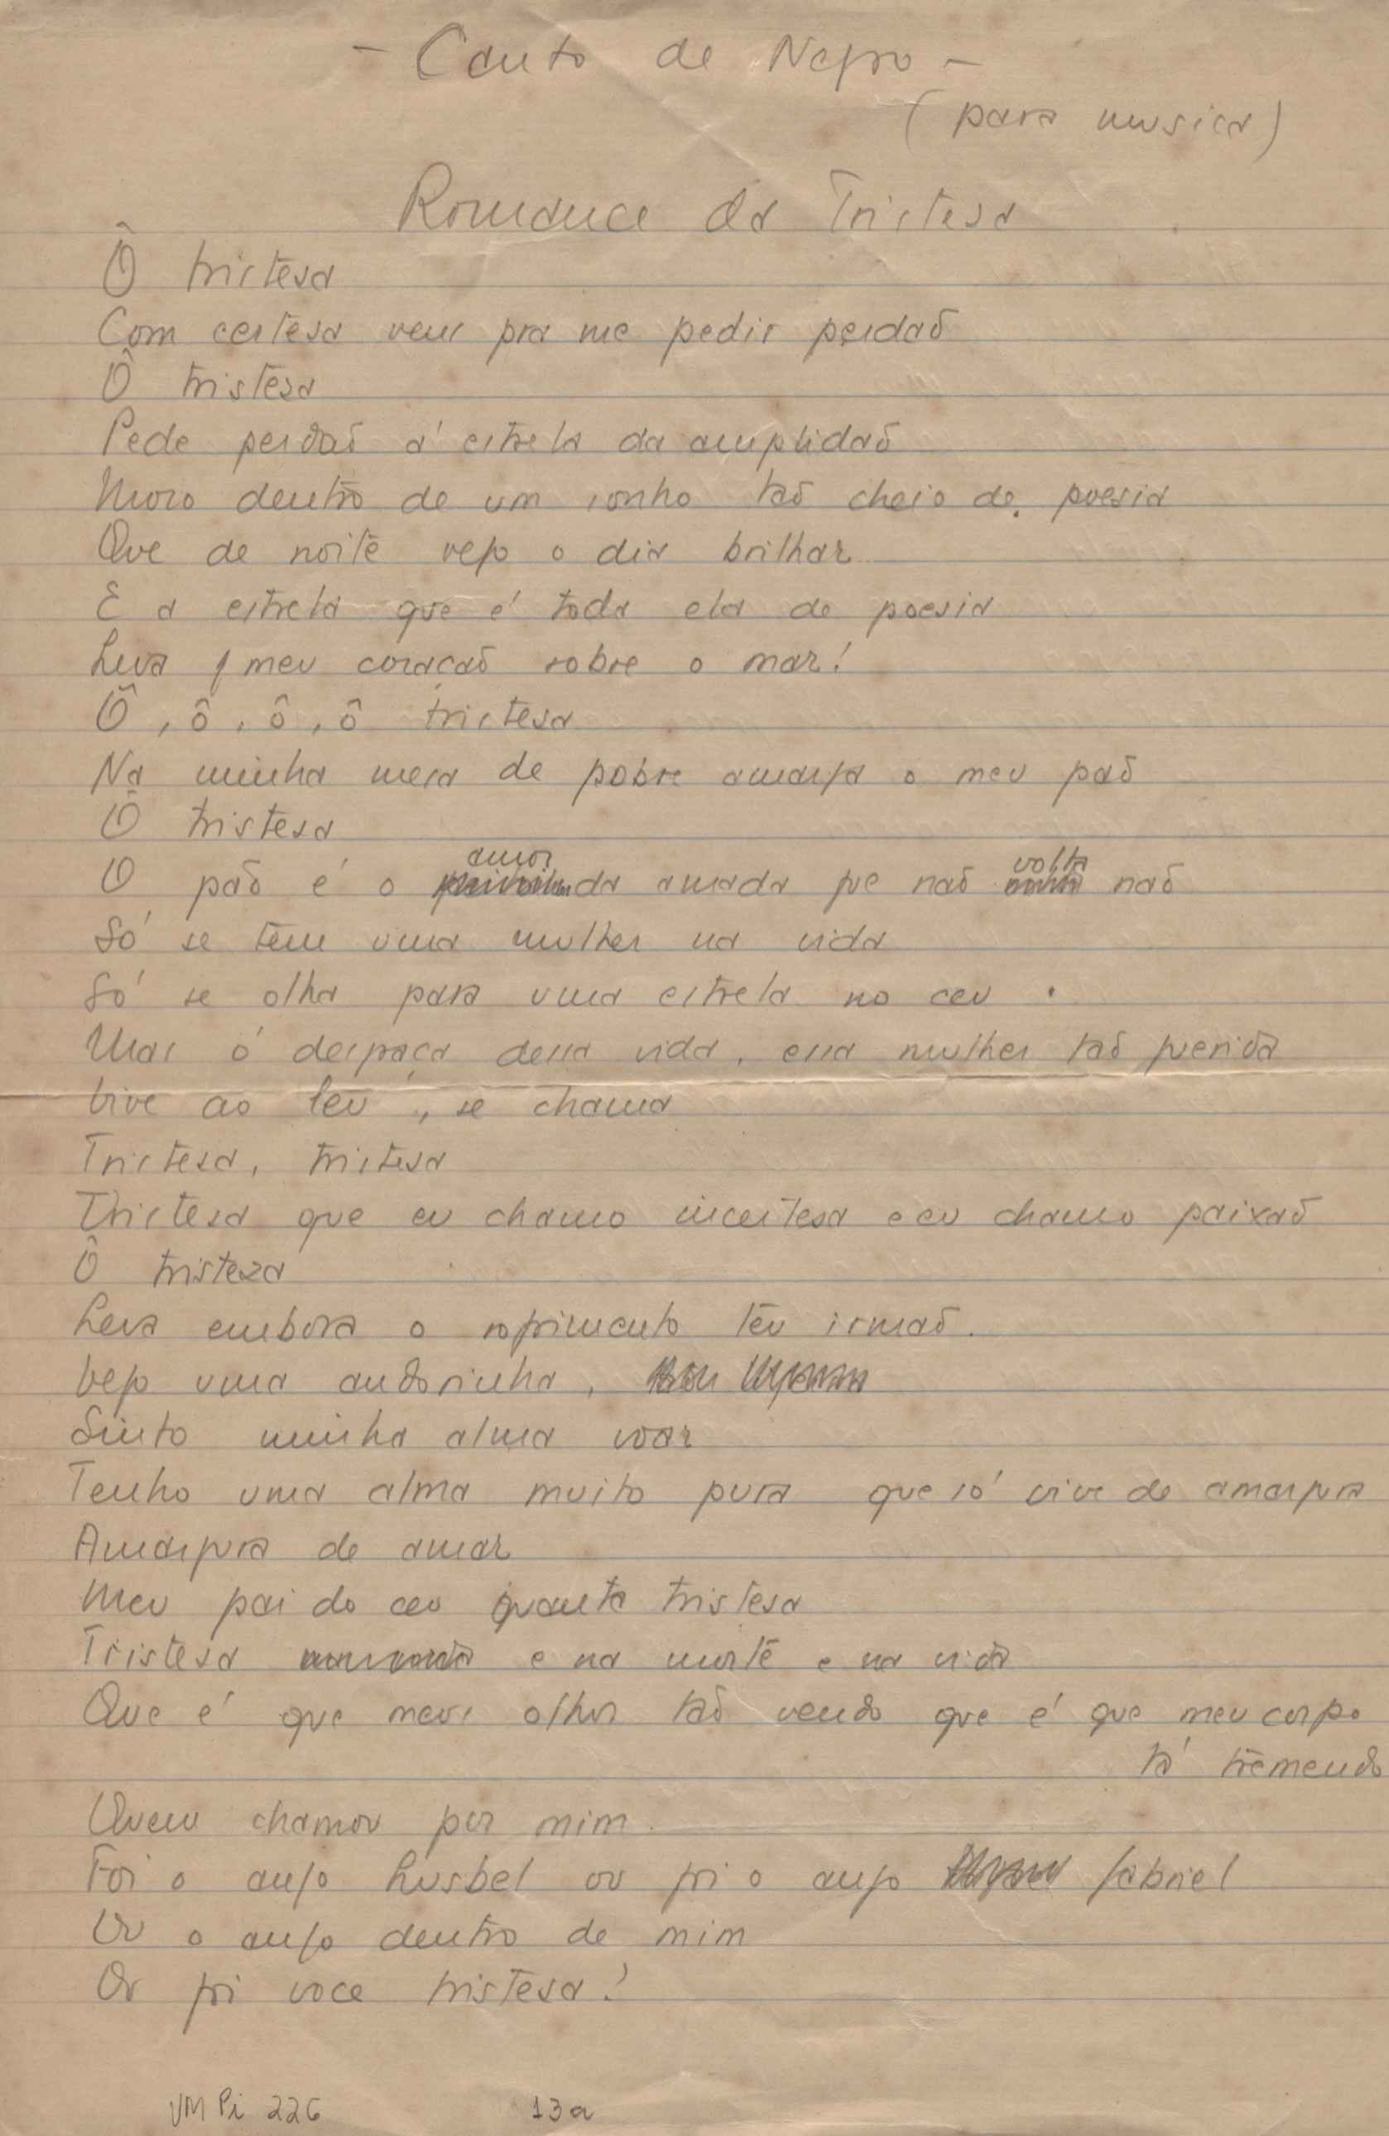 - Canto de Negro -
(para musica)
Romance da Tristesa
Ô tristesa
Com certesa vem pra me pedir perdaõ
Ô tristesa
Pede perdaõ á estrela da amplidaõ
Moro dentro de um sonho taõ cheio de poesia
Que de noite vejo o dia brilhar
E a estrela que é toda ela de poesia
Leva meu coraçaõ sobre o mar!
Ô, ô, ô, ô tristesa
Na minha mesa de pobre amarga o meu paõ
Ô tristesa
O paõ é o amor da amada que naõ volta naõ
Só se tem uma mulher na vida
Só se olha para uma estrela no ceu
Mas ó desgraça dessa vida, essa mulher taõ querida
Vive ao leu, se chama
Tristesa, tristesa
Tristesa que eu chamo incertesa e eu chamo paixaõ
Ô tristeza
Leva embora o sofrimento teu irmaõ.
Vejo uma andorinha,
Sinto minha alma voar
Tenho uma alma muito pura que só vive de amargura
Amargura de amar
Meu pai do ceu quanta tristesa
Tristesa e na morte e na vida
Que é que meus olhos taõ vendo que é que meu corpo
tá tremendo
Quem chamou por mim
Foi o anjo Lusbel ou foi o anjo Gabriel
Ou o anjo dentro de mim
Ou foi voce tristesa!
VMPi 226 13a